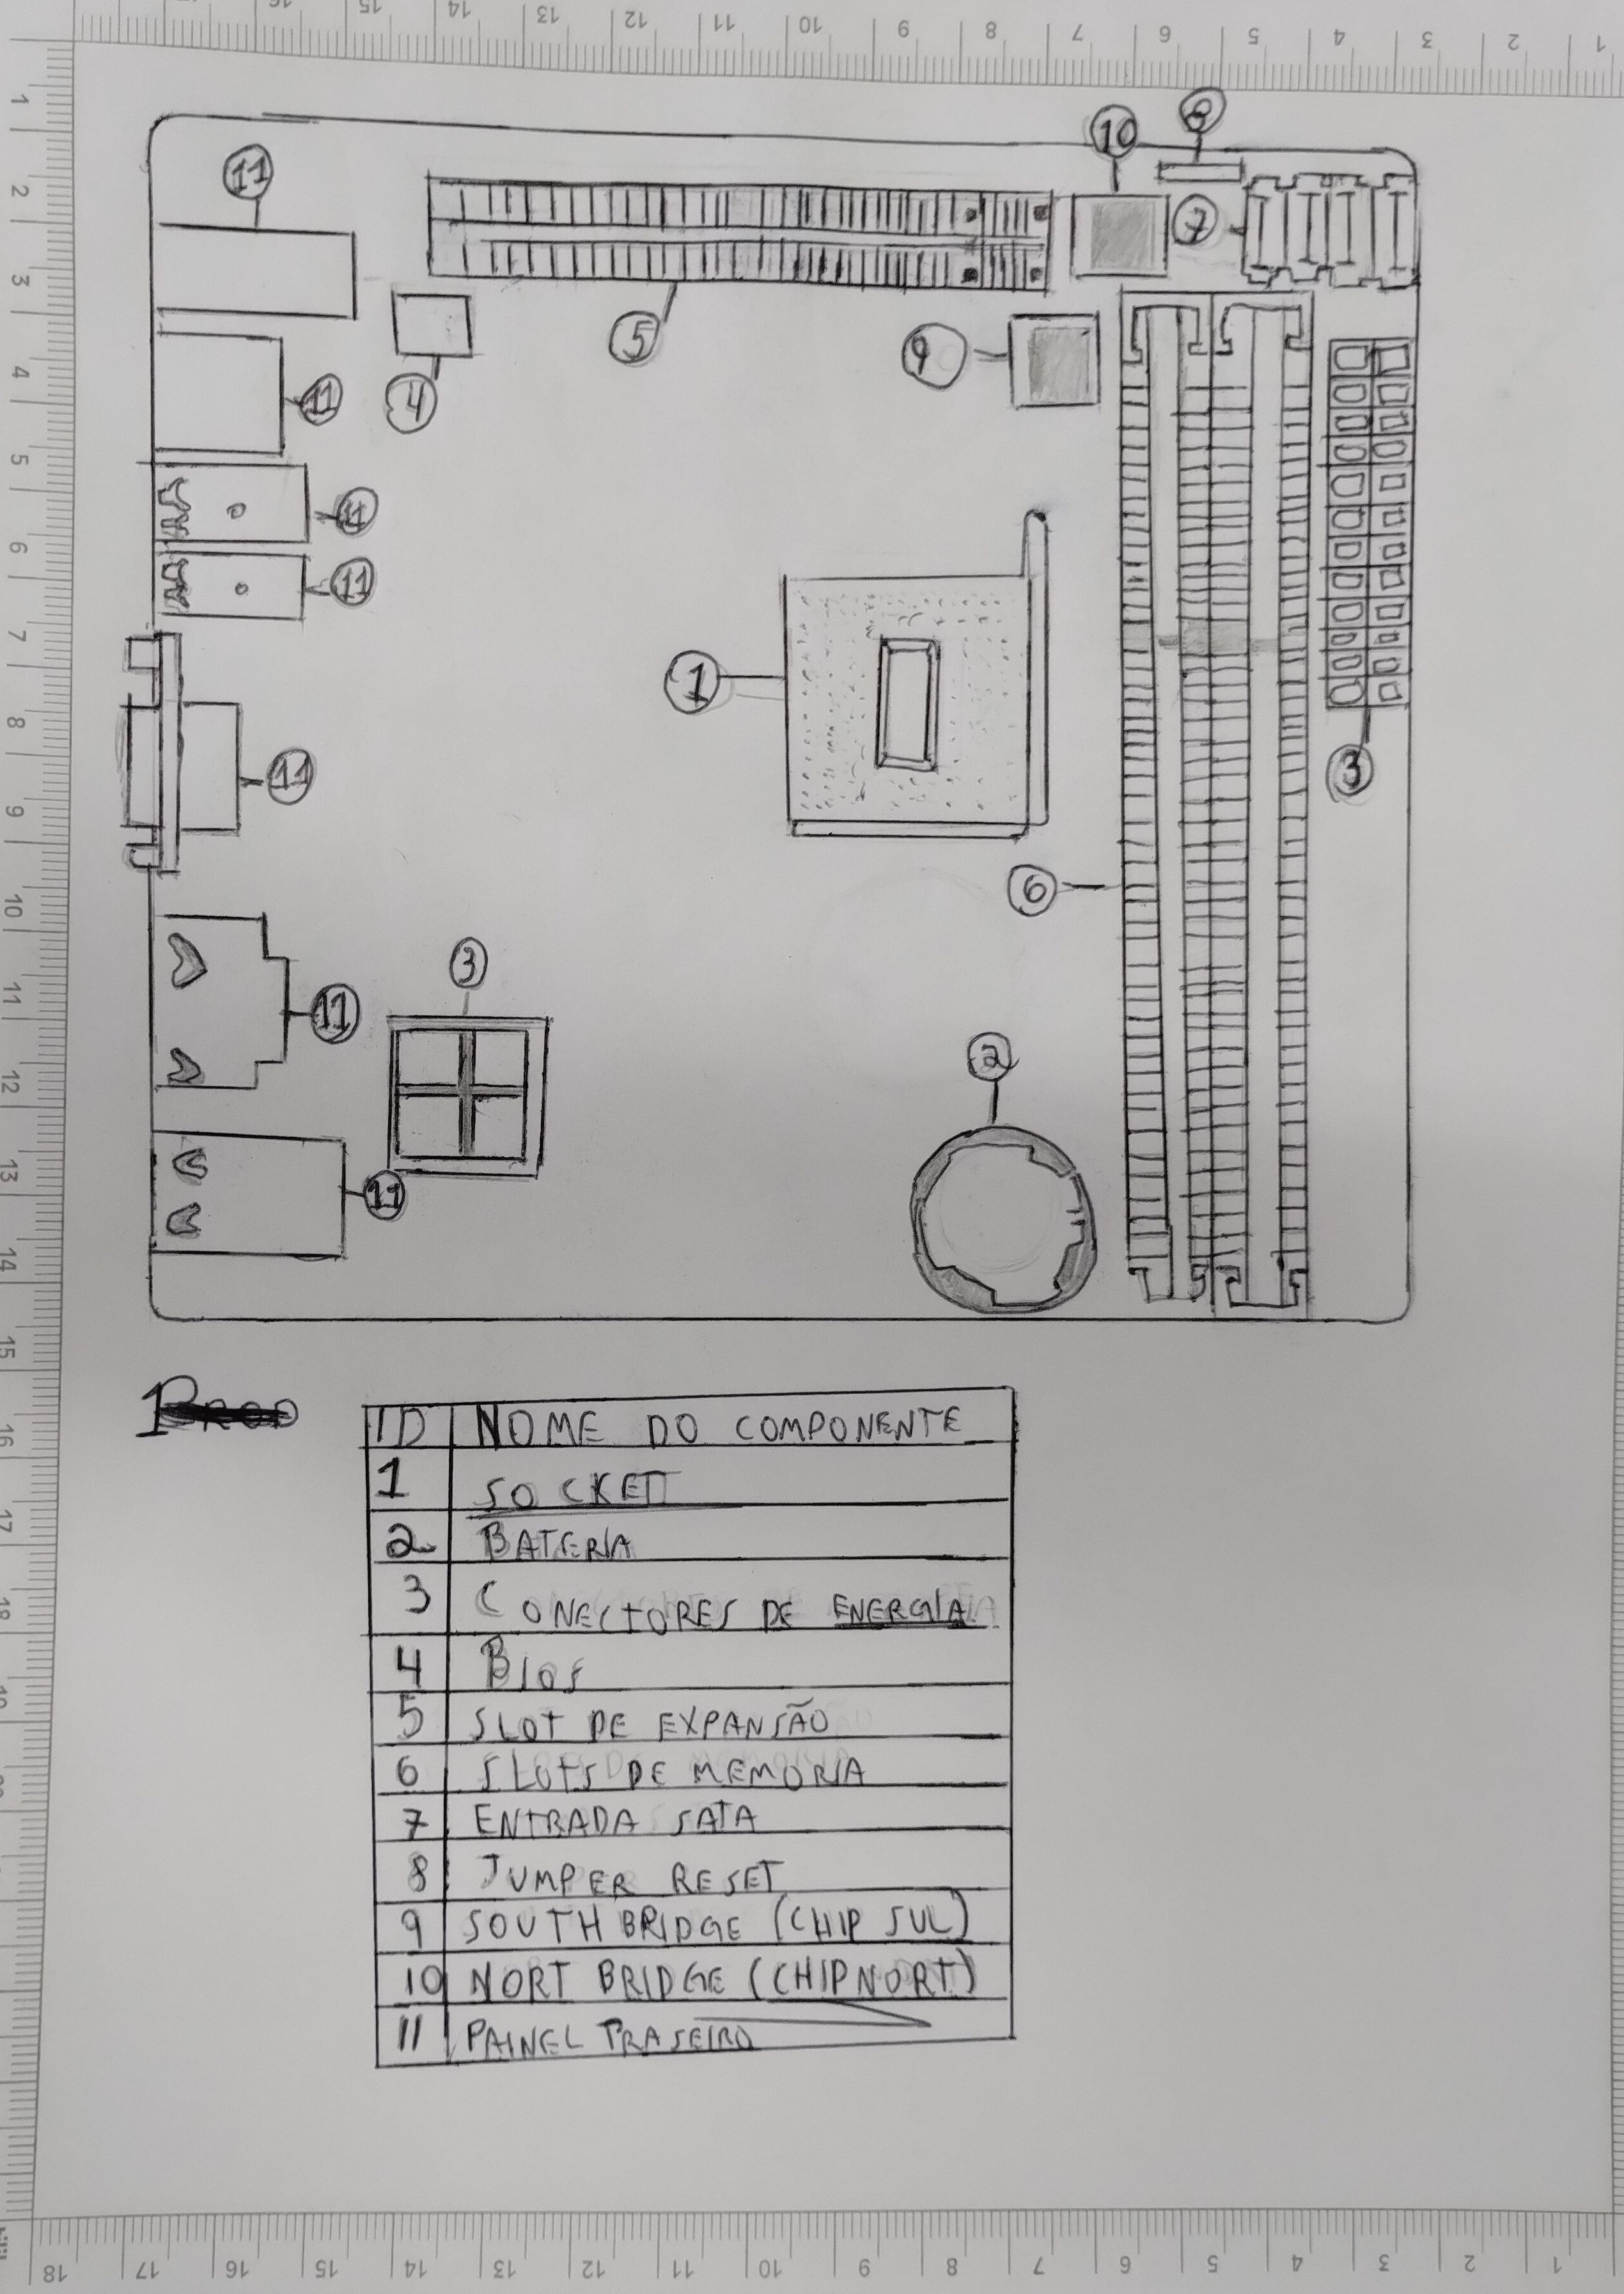 18 17 16 15 14 13 12 11 10 9 8 7 6 5 4 3 2 1
1
2
3
4
5
6
7
8
9
10
11
12
13
14
15
16
17
18
19
10 8
11
7
5
9
11
4
11
11
1
3
11
6
3
11
2
11
ID NOME DO COMPONENTE
1 SOCKET
2 BATERIA
3 CONECTORES DE ENERGIA
4 BIOS
5 SLOT DE EXPANSÃO
6 SLOTS DE MEMORIA
7 ENTRADA SATA
8 JUMPER RESET
9 SOUTH BRIDGE (CHIP SUL)
10 NORT BRIDGE (CHIP NORT)
11 PAINEL TRASEIRO
18 17 16 15 14 13 12 11 10 9 8 7 6 5 4 3 2 1